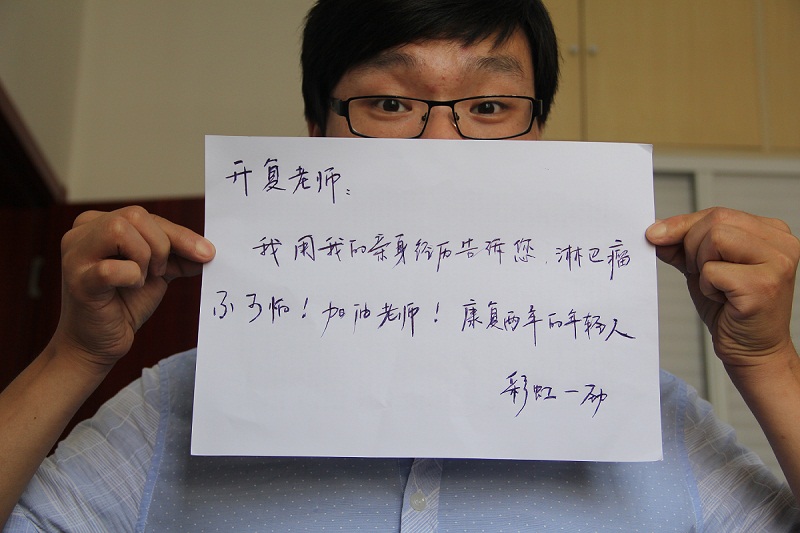 开复老师:
我用我的亲身经历告诉您、淋巴瘤
不可怕!加油老师!康复两年的年轻人
彩虹一